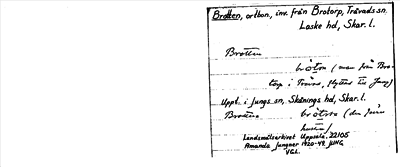 Brotten, ortbon, inv. från Brotorp, Trävads sn,
Laske hd, Skar. l.
Brotten
brötən (man från Bro-
torp i Trävad, flyttat till Jung)
Uppt. i Jungs sn, Skånings hd, Skar. l.
Brotten
brötən (den förres
hustru)
Landsmålsarkivet Uppsala, 22105
Amanda Jungner 1920-49 JUNG
VGL.